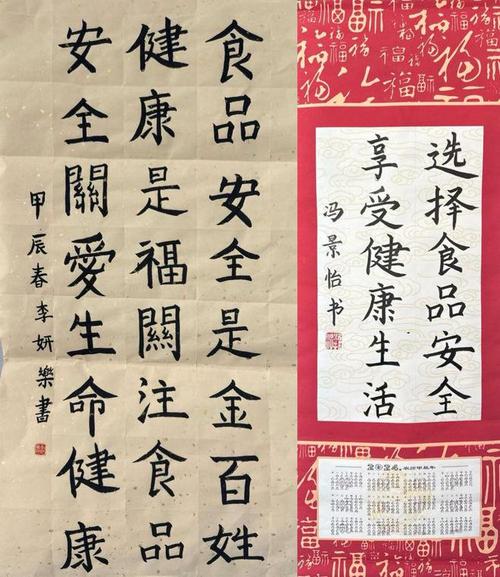 食品安全是金百姓
健康是福關注食品
安全關愛生命健康
甲辰春李妍樂書
选择食品安全
享受健康生活
冯景怡书
2024 农历甲辰年